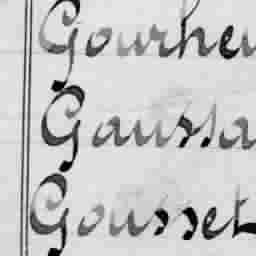 Gourheu
Gaussa
Gousset